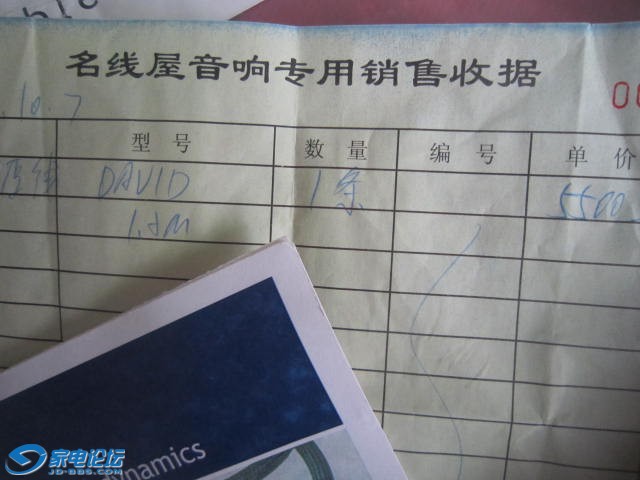 名线屋音响专用销售收据
00
.10.7
型号 数量 编号 单价
DAVID 1条 5500
1.5M
dynamics
家电论坛
JD-BBS.COM